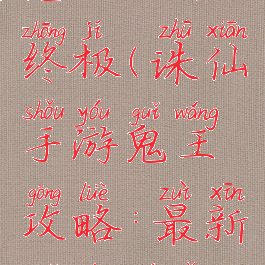 zhōng jí zhū xiān
终极(诛仙
shǒu yóu guǐ wáng
手游鬼王
gōng lüè zuì xīn
攻略:最新